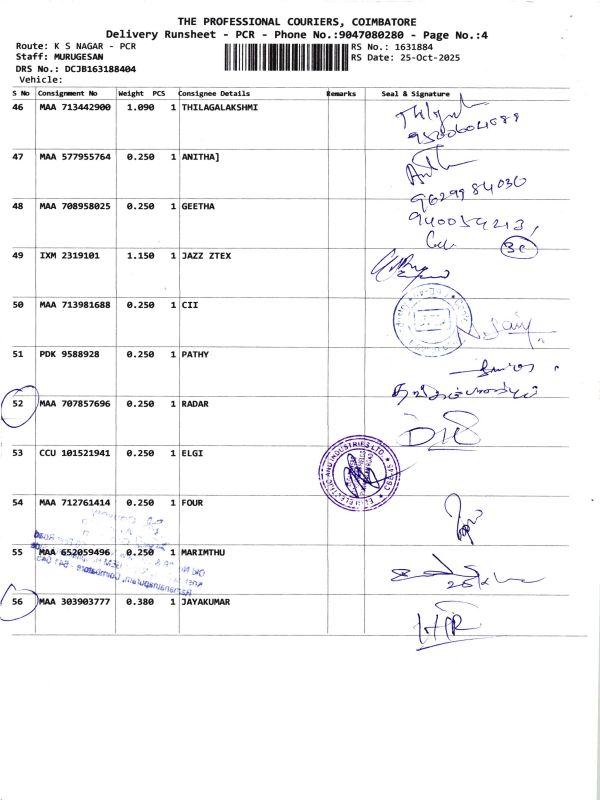 THE PROFESSIONAL COURIERS, COIMBATORE
Delivery Runsheet - PCR - Phone No.:9047080280 - Page No.:4
Route: K S NAGAR - PCR
RS No.: 1631884
Staff: MURUGESAN
RS Date: 25-Oct-2025
DRS No.: DCJB163188404
Vehicle:
S No Consignment No Weight PCS Consignee Details Remarks Seal & Signature
46 MAA 713442900 1.090 1 THILAGALAKSHMI
47 MAA 577955764 0.250 1 ANITHA]
9629984030
48 MAA 708958025 0.250 1 GEETHA
49 IXM 2319101 1.150 1 JAZZ ZTEX
50 MAA 713981688 0.250 1 CII
51 PDK 9588928 0.250 1 PATHY
52 MAA 707857696 0.250 1 RADAR
53 CCU 101521941 0.250 1 ELGI
54 MAA 712761414 0.250 1 FOUR
55 MAA 652059496 0.250 1 MARIMTHU
56 MAA 303903777 0.380 1 JAYAKUMAR